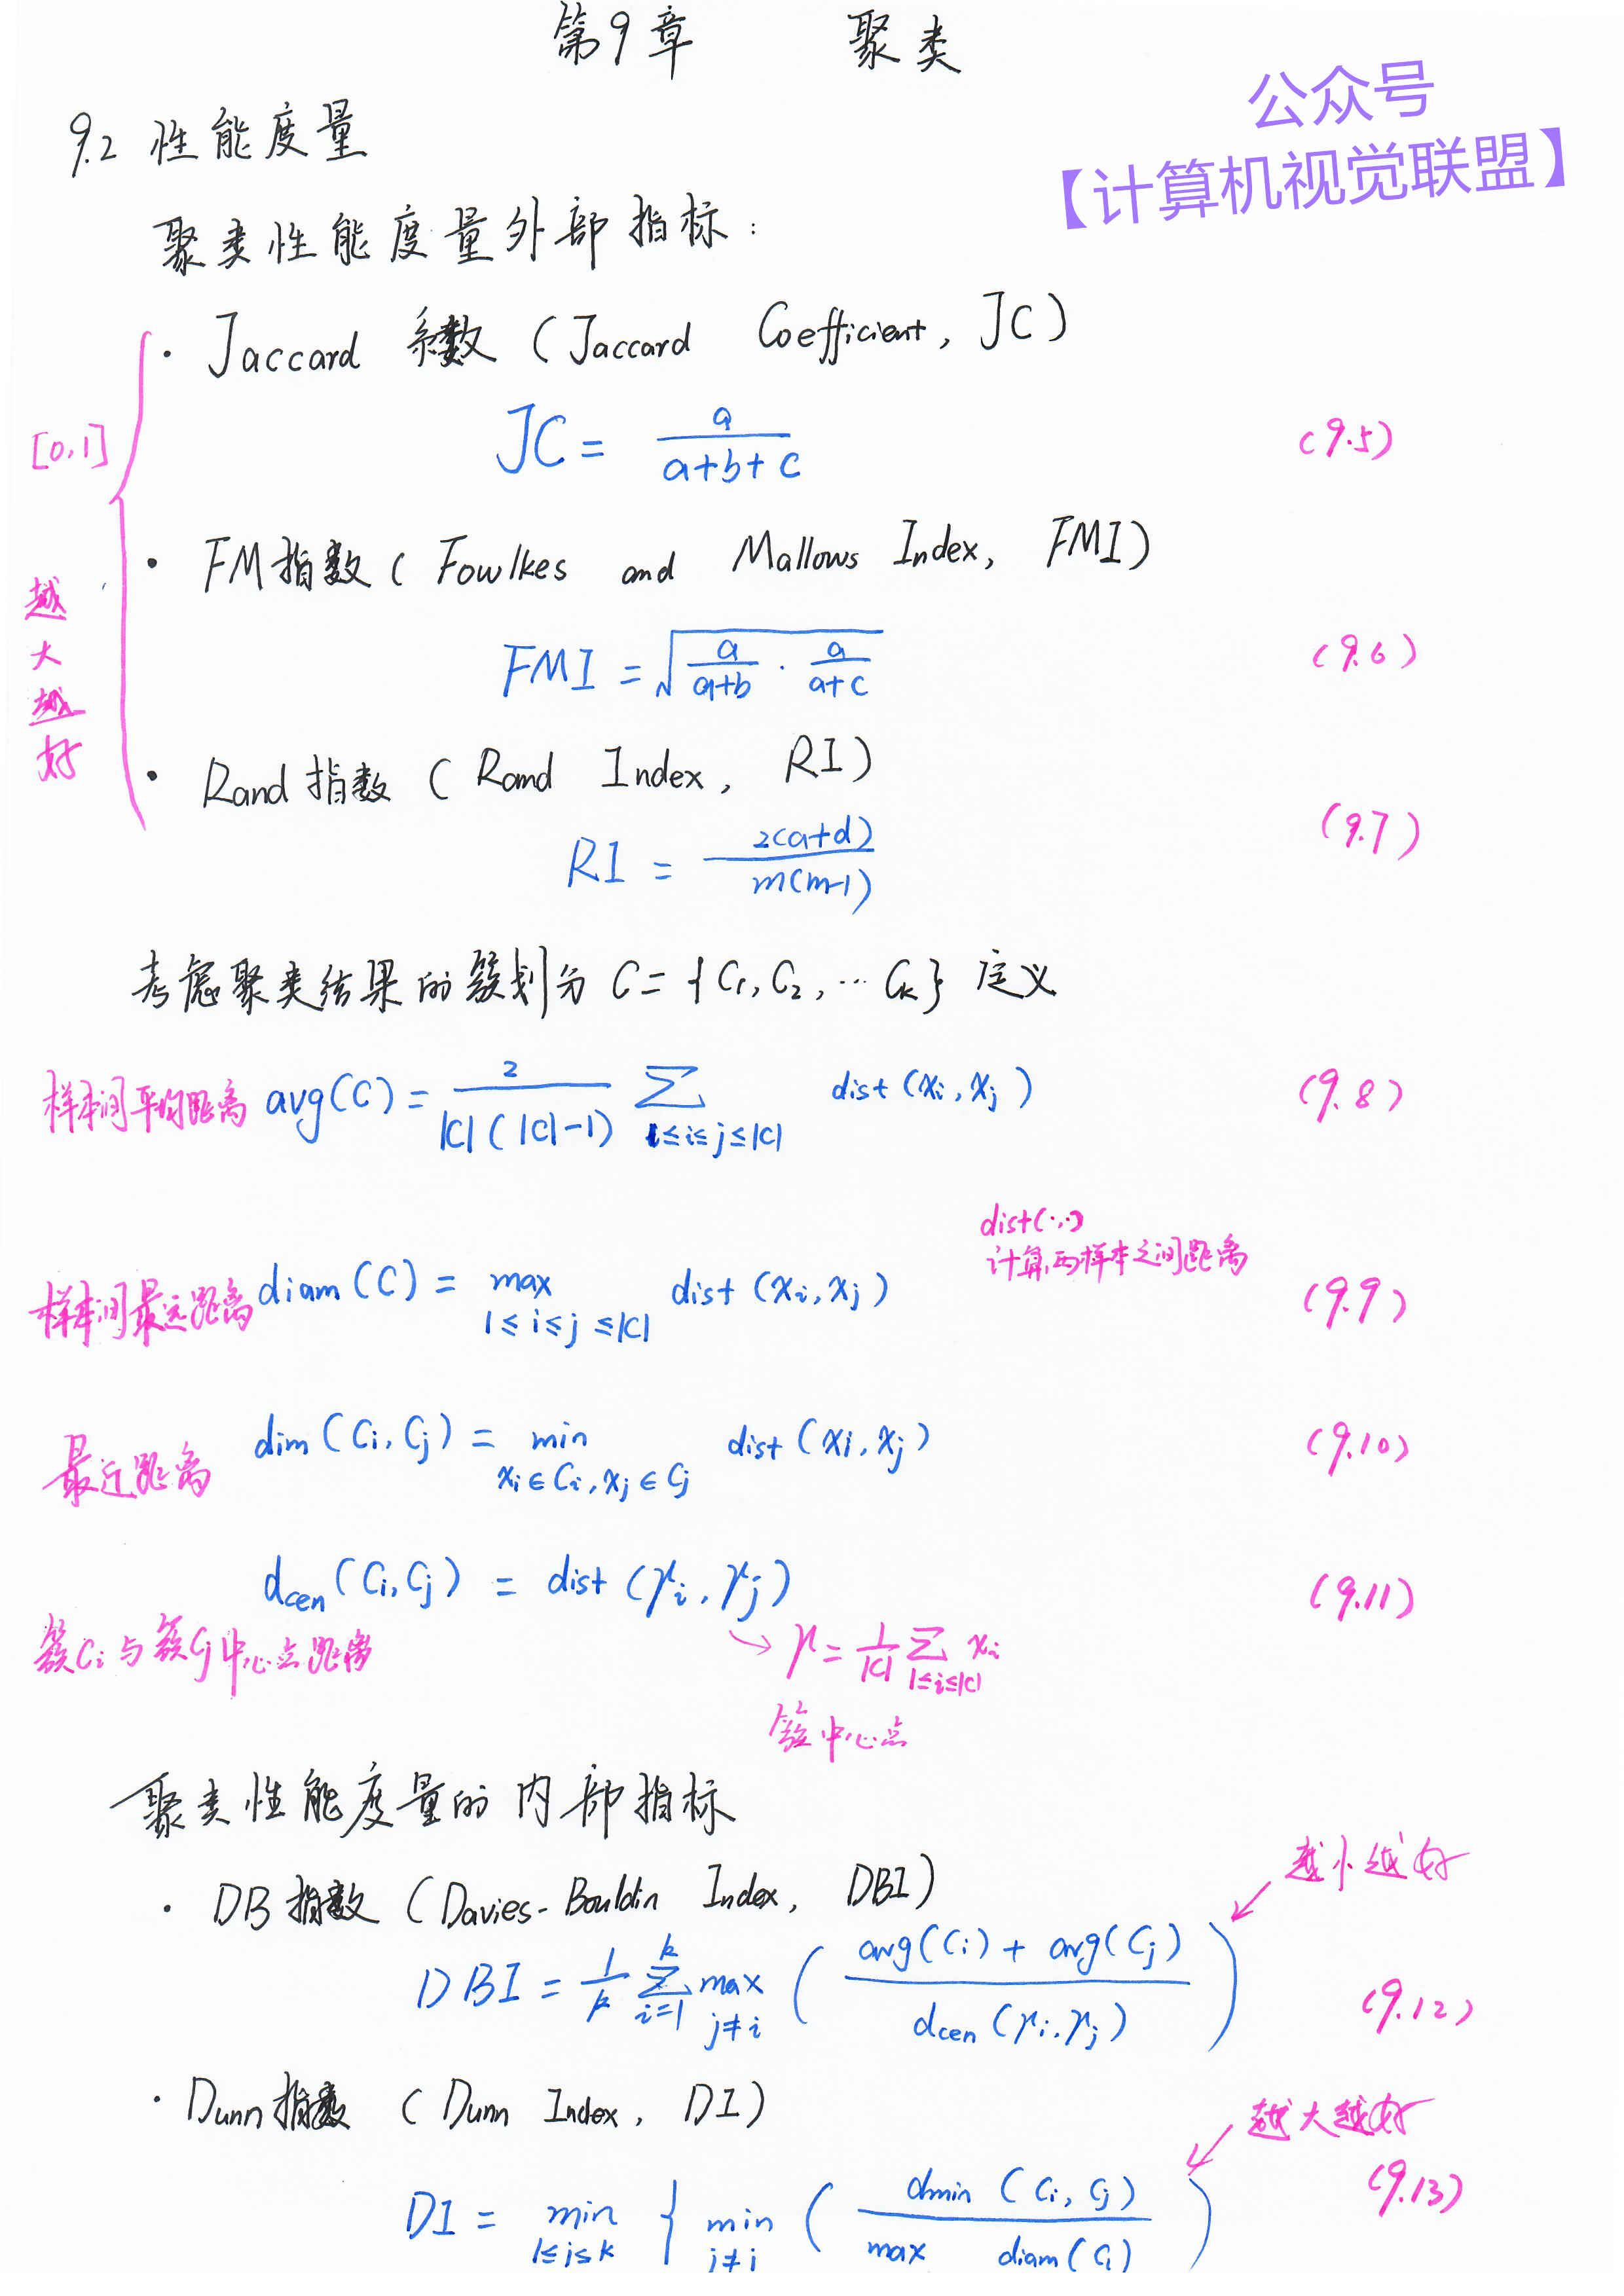 第9章 聚类
公众号
【计算机视觉联盟】
9.2 性能度量
聚类性能度量外部指标：
[0,1] 越大越好
· Jaccard 系数 (Jaccard Coefficient, JC)
JC = a/(a+b+c) (9.5)
· FM指数 (Fowlkes and Mallows Index, FMI)
FMI = √(a/(a+b) · a/(a+c)) (9.6)
· Rand指数 (Rand Index, RI)
RI = 2(a+d)/m(m-1) (9.7)
考虑聚类结果的簇划分 C = {C₁, C₂, … Cₖ} 定义
样本间平均距离 avg(C) = 2/(|C|(|C|-1)) Σ 1≤i≤j≤|C| dist(xᵢ, xⱼ) (9.8)
dist(·,·)
计算两样本之间距离
样本间最远距离 diam(C) = max 1≤i≤j≤|C| dist(xᵢ, xⱼ) (9.9)
最近距离 dim(Cᵢ, Cⱼ) = min xᵢ∈Cᵢ, xⱼ∈Cⱼ dist(xᵢ, xⱼ) (9.10)
dcen(Cᵢ, Cⱼ) = dist(μᵢ, μⱼ) (9.11)
簇Cᵢ与簇Cⱼ中心点距离
→ μ = 1/|C| Σ 1≤i≤|C| xᵢ
簇中心点
聚类性能度量的内部指标
越小越好
· DB指数 (Davies-Bouldin Index, DBI)
DBI = 1/k Σ i=1 k max j≠i ( (avg(Cᵢ) + avg(Cⱼ)) / dcen(μᵢ, μⱼ) ) (9.12)
· Dunn指数 (Dunn Index, DI)
越大越好
DI = min 1≤j≤k { min j≠i ( dmin(Cᵢ, Cⱼ) / max diam(Cₗ) ) (9.13)